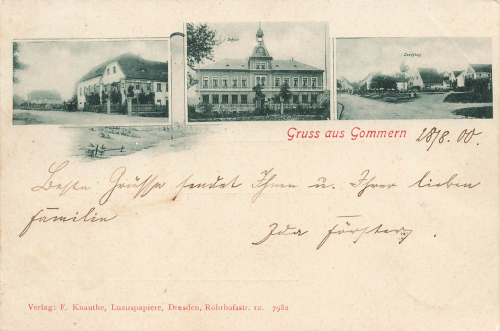 Schule
Dorfplatz
Gruss aus Gommern 18/8. 00.
Beste Grüsse sendet Ihnen u. Ihrer lieben
Familie
Ida Förster.
Verlag: F. Knauthe, Luxuspapiere, Dresden, Röhrhofsstr. 12. 7982